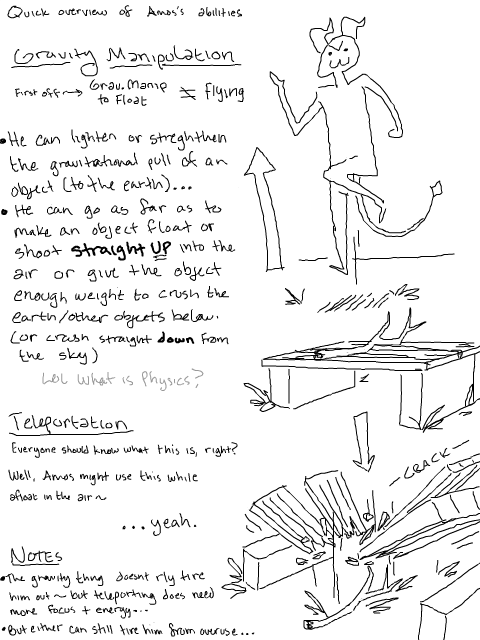 Quick overview of Amos's abilities
Gravity Manipulation
First off~> Grav. Manip
to Float ≠ flying
• He can lighten or streghthen
the gravitational pull of an
object (to the earth)...
• He can go as far as to
make an object float or
shoot straight UP into the
air or give the object
enough weight to crush the
earth/other objects below.
(or crash straight down from
the sky)
LOL What is Physics?
Teleportation
Everyone should know what this is, right?
Well, Amos might use this while
afloat in the air~
...yeah.
Notes
• The gravity thing doesnt rly tire
him out~ but teleporting does need
more focus + energy...
• But either can still tire him from overuse...
-CRACK-